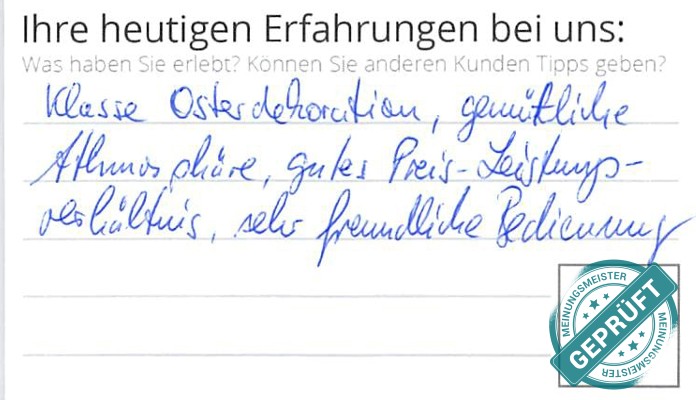 Ihre heutigen Erfahrungen bei uns:
Was haben Sie erlebt? Können Sie anderen Kunden Tipps geben?
Klasse Osterdekoration, gemütliche
Athmosphäre, gutes Preis-Leistungs-
verhältnis, sehr freundliche Bedienung
MEINUNGSMEISTER
GEPRÜFT
MEINUNGSMEISTER